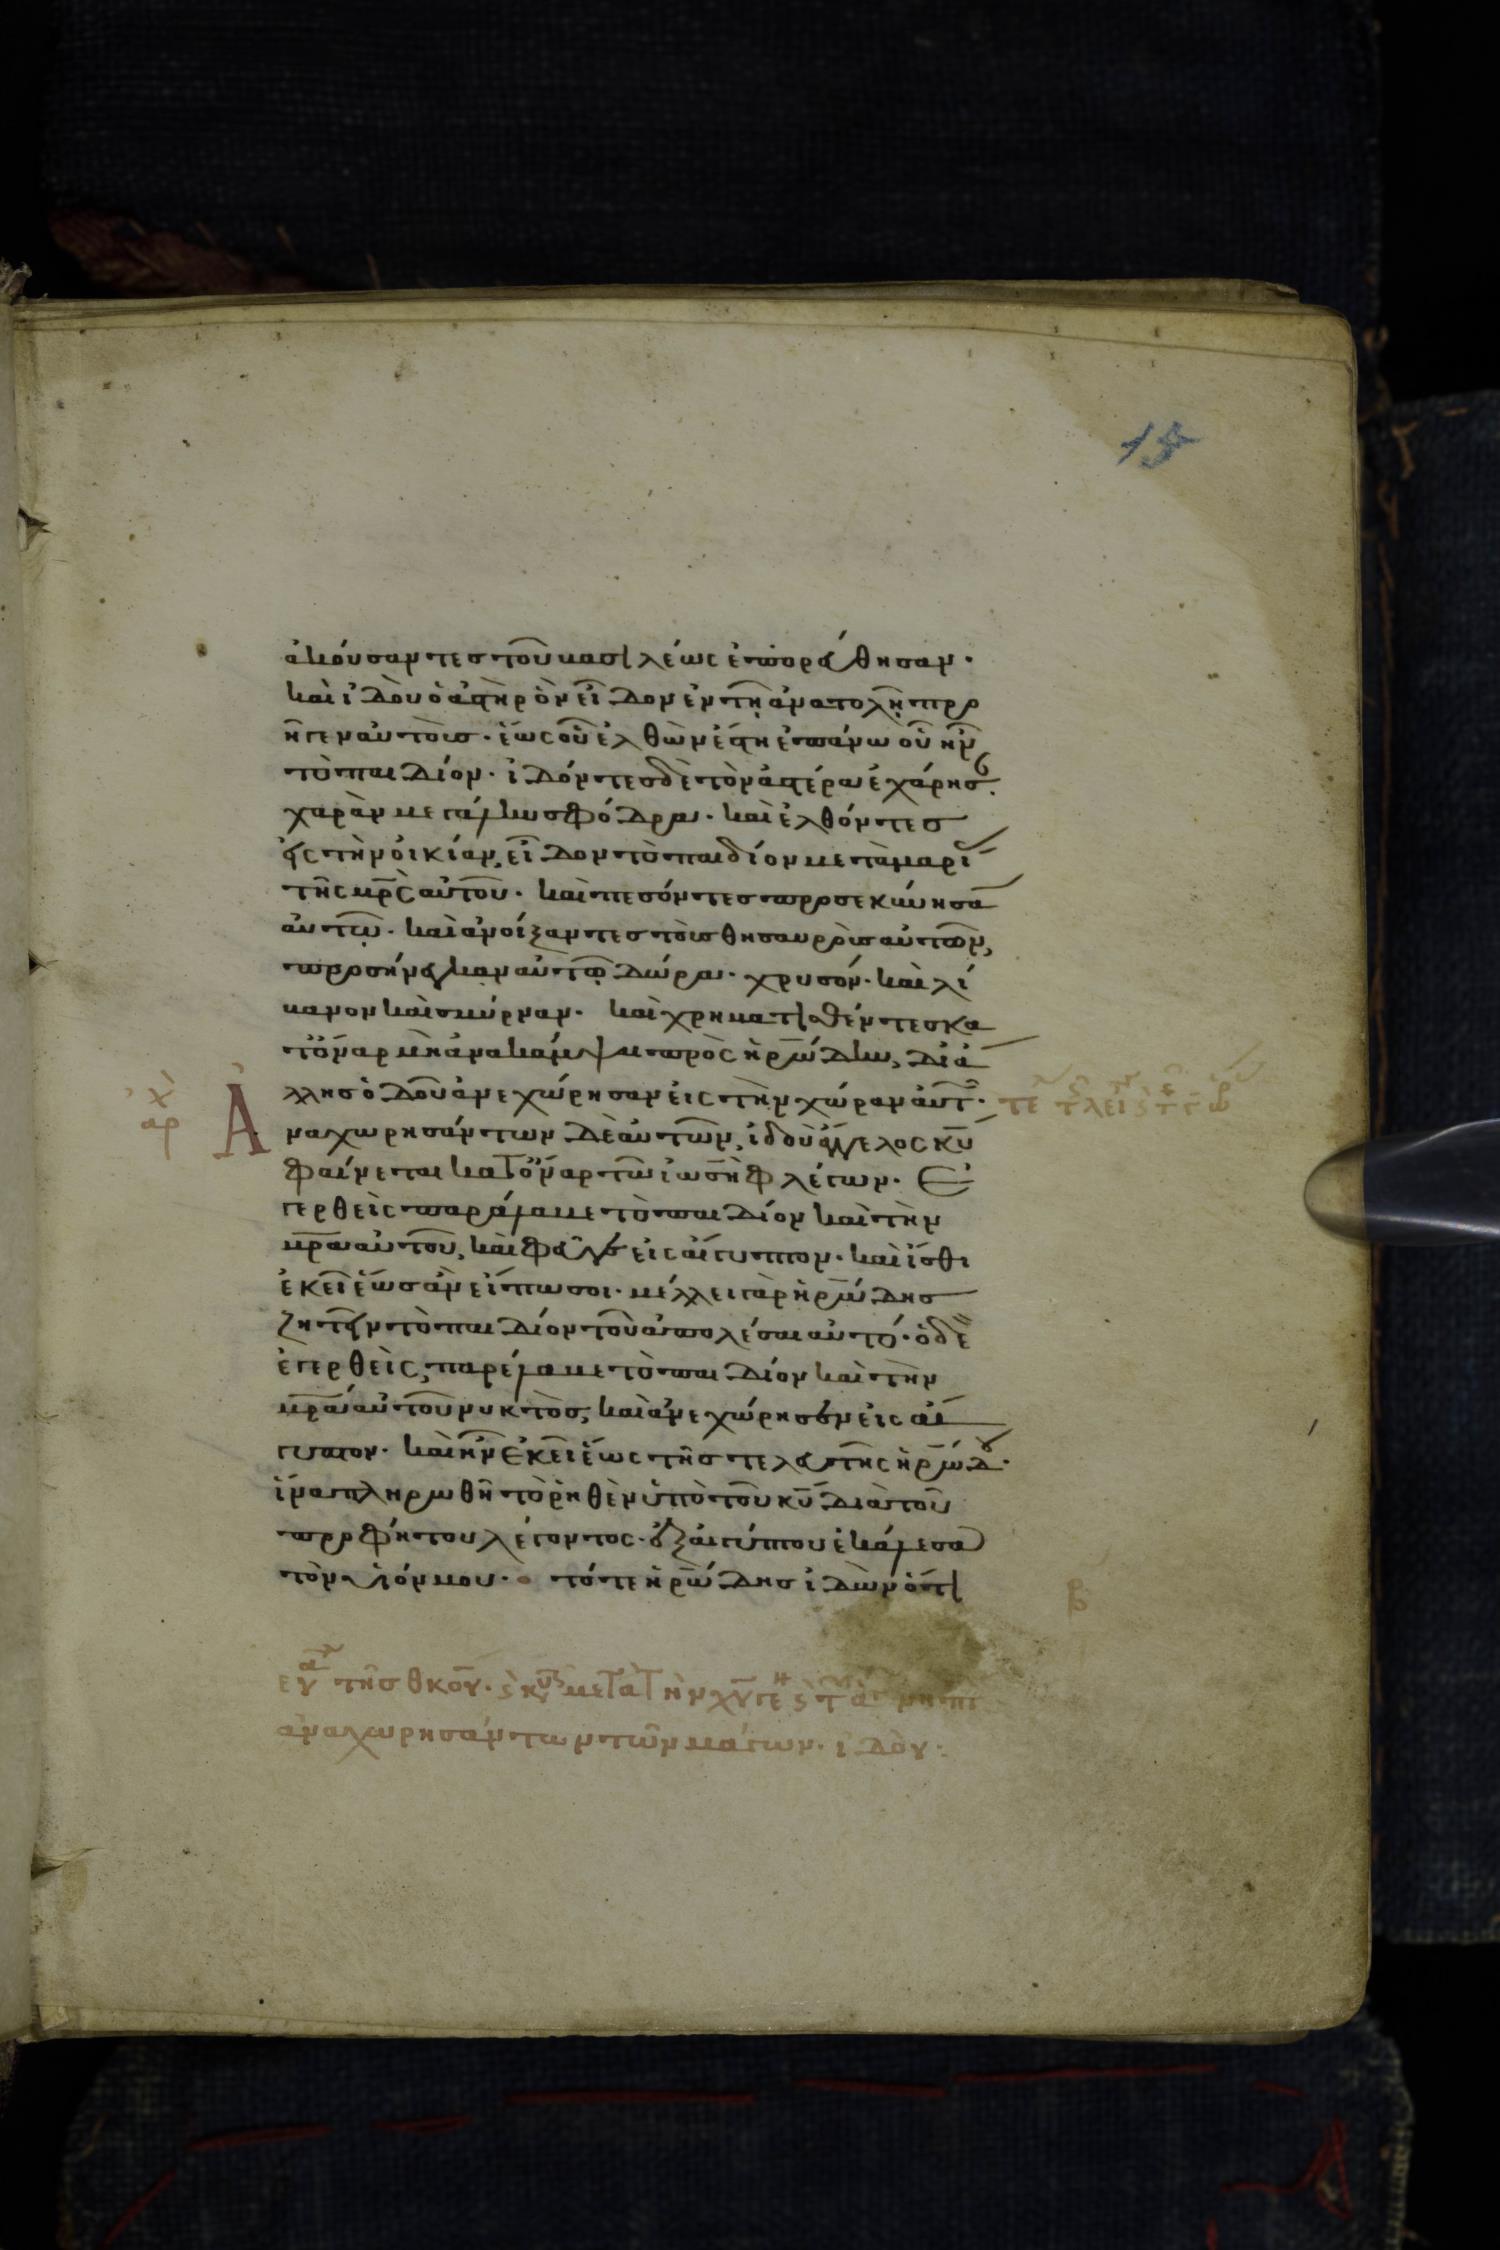 15
ἀκούσαντες τοῦ βασιλέως ἐπορεύθησαν·
καὶ ἰδοὺ ὁ ἀστὴρ ὃν εἶδον ἐν τῇ ἀνατολῇ προ
ῆγεν αὐτοὺς· ἕως οὗ ἐλθὼν ἔστη ἐπάνω οὗ ἦν
τὸ παιδίον· ἰδόντες δὲ τὸν ἀστέρα ἐχάρησ
χαρὰν μεγάλην σφόδρα· καὶ ἐλθόντες
εἰς τὴν οἰκίαν, εἶδον τὸ παιδίον μετὰ μαρί
τῆς μρ̅ς αὐτοῦ· καὶ πεσόντες προσεκύνησα
αὐτῷ· καὶ ἀνοίξαντες τοὺς θησαυροὺς αὐτῶν,
προσήνεγκαν αὐτῷ δῶρα· χρυσόν· καὶ λί
βανον καὶ σμύρναν· καὶ χρηματισθέντες κα
τ' ὄναρ μὴ ἀνακάμψαι πρὸς ἡρώδην, δι' ἀ
λλης ὁδοῦ ἀνεχώρησαν εἰς τὴν χώραν αὐτ·
ἀρχ
Ἀ
ναχωρησάντων δὲ αὐτῶν, ἰδοὺ ἄγγελος κυ̅
φαίνεται κατ' ὄναρ τῶ ἰωσὴφ λέγων· Ἐ
γερθεὶς παράλαβε τὸ παιδίον καὶ τὴν
μρ̅α αὐτοῦ, καὶ φεῦγε εἰς αἴγυπτον· καὶ ἴσθι
ἐκεῖ ἕως ἂν εἴπω σοι· μέλλει γὰρ ἡρώδης
ζητεῖν τὸ παιδίον τοῦ ἀπολέσαι αὐτό· ὁ δὲ
ἐγερθεὶς, παρέλαβε τὸ παιδίον καὶ τὴν
μρ̅α αὐτοῦ νυκτὸς, καὶ ἀνεχώρησεν εἰς αἴ
γυπτον· καὶ ἦν ἐκεῖ ἕως τῆς τελευτῆς ἡρώδ·
ἵνα πληρωθῆ τὸ ῥηθὲν ὑπὸ τοῦ κυ̅ διὰ τοῦ
προφήτου λέγοντος· ἐξ αἰγύπτου ἐκάλεσα
τὸν υἱόν μου· τότε ἡρώδης ἰδὼν ὅτι
β
τῆς θκου· μετὰ τὴν χυ
ἀναχωρησάντων τῶν μάγων· ἰδοὺ·